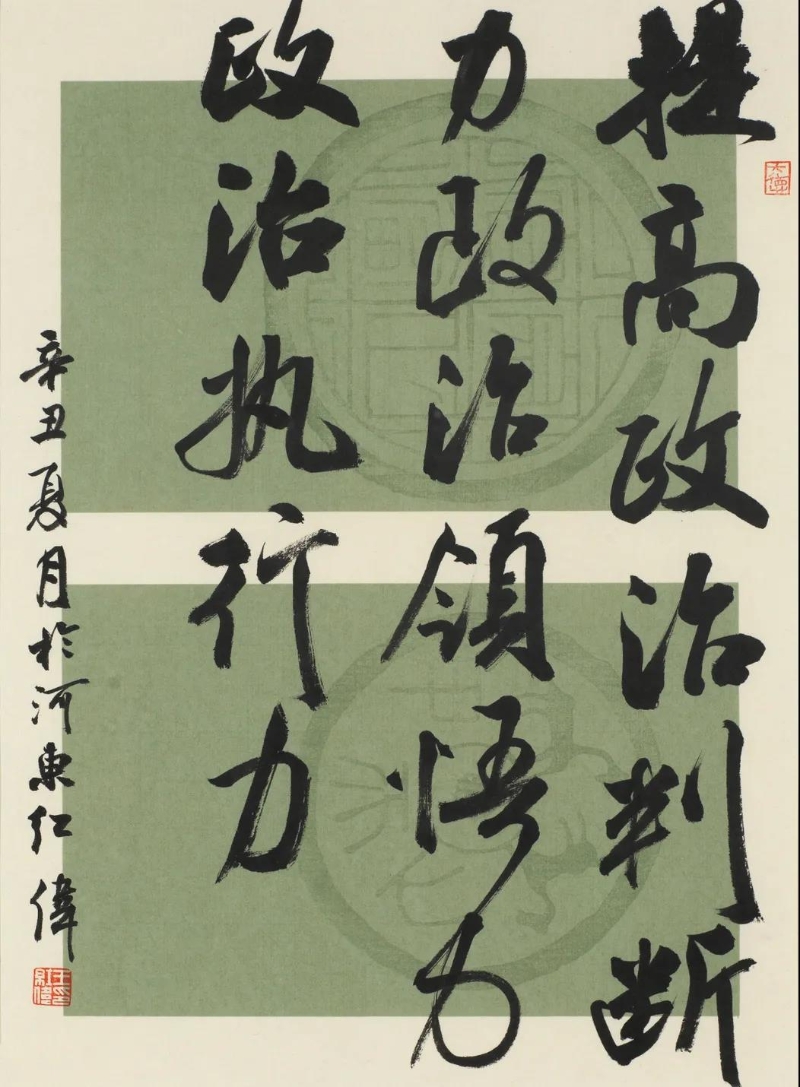 提高政治判断
力政治领悟力
政治执行力
辛丑夏月於河东红偉